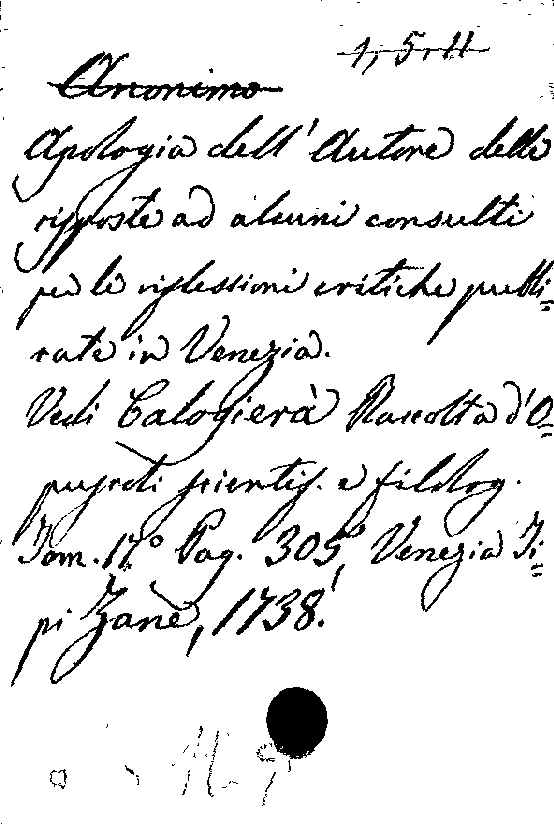 1, 5, 11
Anonimo
Apologia dell' Autore delle
risposte ad alcuni consulti
per le riflessioni critiche pubbli=
cate in Venezia.
Vedi Calogierà Raccolta d'O=
puscoli scientif. e filolog.
Tom. 17º Pag. 305, Venezia Ti=
pi Zane, 1738.